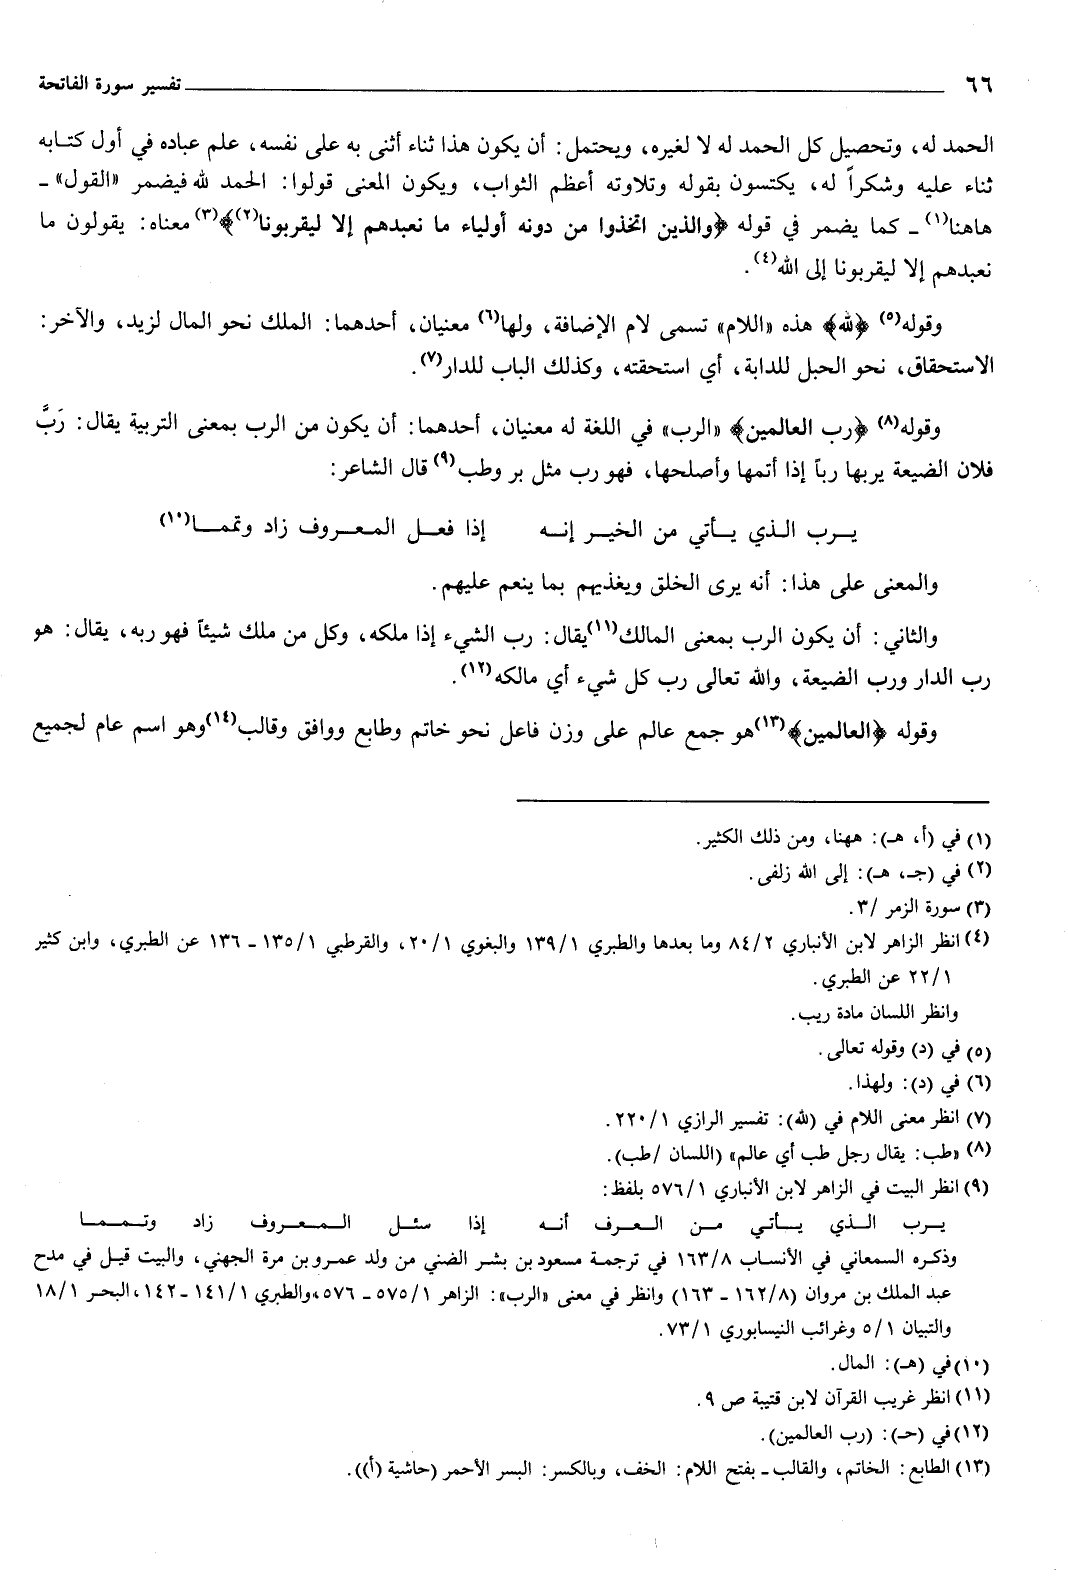 ٦٦ تفسير سورة الفاتحة
الحمد له، وتحصيل كل الحمد له لا لغيره، ويحتمل: أن يكون هذا ثناء أثنى به على نفسه، علم عباده في أول كتابه
ثناء عليه وشكراً له، يكتسون بقوله وتلاوته أعظم الثواب، ويكون المعنى قولوا: الحمد لله فيضمر «القول» ـ
هاهنا(١) ـ كما يضمر في قوله ﴿والذين اتخذوا من دونه أولياء ما نعبدهم إلا ليقربونا(٢)﴾(٣) معناه: يقولون ما
نعبدهم إلا ليقربونا إلى الله(٤).
وقوله(٥) ﴿لله﴾ هذه «اللام» تسمى لام الإضافة، ولها(٦) معنيان، أحدهما: الملك نحو المال لزيد، والآخر:
الاستحقاق، نحو الحبل للدابة، أي استحقته، وكذلك الباب للدار(٧).
وقوله(٨) ﴿رب العالمين﴾ «الرب» في اللغة له معنيان، أحدهما: أن يكون من الرب بمعنى التربية يقال: رَبَّ
فلان الضيعة يربها رباً إذا أتمها وأصلحها، فهو رب مثل بر وطب(٩) قال الشاعر:
يـرب الـذي يـأتي من الخيـر إنـه إذا فعـل المـعـروف زاد وتمـمـا(١٠)
والمعنى على هذا: أنه يرى الخلق ويغذيهم بما ينعم عليهم.
والثاني: أن يكون الرب بمعنى المالك(١١)يقال: رب الشيء إذا ملكه، وكل من ملك شيئاً فهو ربه، يقال: هو
رب الدار ورب الضيعة، والله تعالى رب كل شيء أي مالكه(١٢).
وقوله ﴿العالمين﴾(١٣)هو جمع عالم على وزن فاعل نحو خاتم وطابع ووافق وقالب(١٤)وهو اسم عام لجميع
(١) في (أ، هـ): ههنا، ومن ذلك الكثير.
(٢) في (جـ، هـ): إلى الله زلفى.
(٣) سورة الزمر /٣.
(٤) انظر الزاهر لابن الأنباري ٨٤/٢ وما بعدها والطبري ١٣٩/١ والبغوي ٢٠/١، والقرطبي ١٣٥/١ ـ ١٣٦ عن الطبري، وابن كثير
٢٢/١ عن الطبري.
وانظر اللسان مادة ريب.
(٥) في (د) وقوله تعالى.
(٦) في (د): ولهذا.
(٧) انظر معنى اللام في (لله): تفسير الرازي ٢٢٠/١.
(٨) «طب: يقال رجل طب أي عالم» (اللسان /طب).
(٩) انظر البيت في الزاهر لابن الأنباري ٥٧٦/١ بلفظ:
يـرب الـذي يـأتـي مـن الـعـرف أنـه إذا سئـل المـعـروف زاد وتمـمـا
وذكره السمعاني في الأنساب ١٦٣/٨ في ترجمة مسعود بن بشر الضني من ولد عمرو بن مرة الجهني، والبيت قيل في مدح
عبد الملك بن مروان (١٦٢/٨ ـ ١٦٣) وانظر في معنى «الرب»: الزاهر ٥٧٥/١ ـ ٥٧٦،والطبري ١٤١/١ ـ١٤٢،البحر ١٨/١
والتبيان ٥/١ وغرائب النيسابوري ٧٣/١.
(١٠)في (هـ): المال.
(١١) انظر غريب القرآن لابن قتيبة ص ٩.
(١٢)في (حـ): (رب العالمين).
(١٣) الطابع: الخاتم، والقالب ـ بفتح اللام: الخف، وبالكسر: البسر الأحمر (حاشية (أ)).